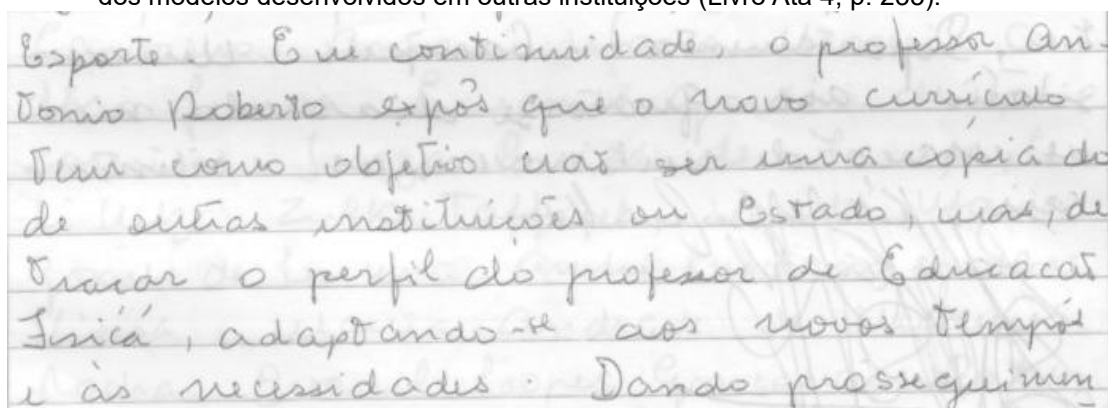 dos modelos desenvolvidos em outras instituições (Livro Ata 4, p. 200).
Esporte. Em continuidade, o professor An-
tonio Roberto expôs que o novo currículo
tem como objetivo não ser uma cópia do
de outras instituições ou Estado, mas, de
traçar o perfil do professor de Educação
Física, adaptando-se aos novos tempos
e às necessidades. Dando prosseguimen